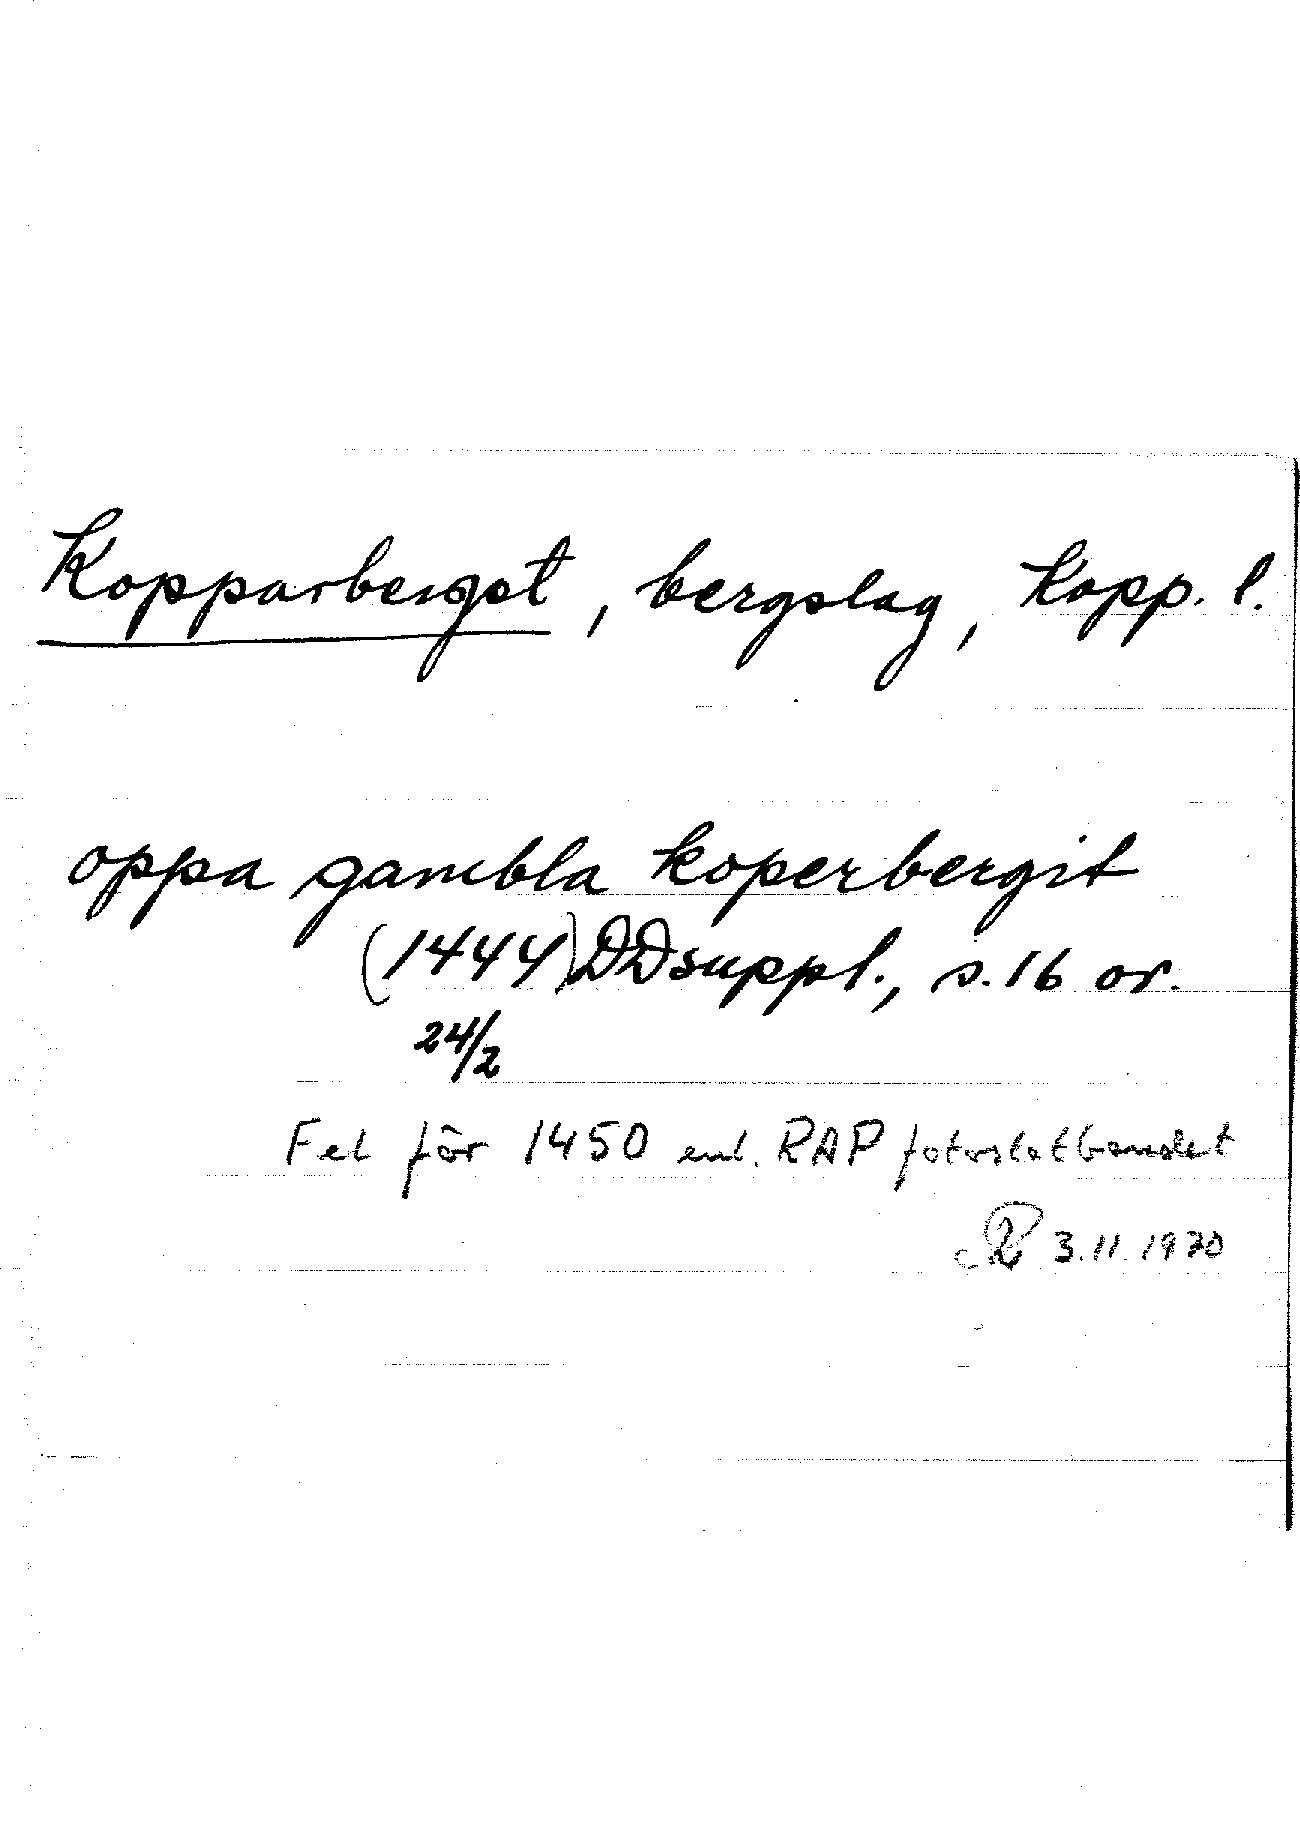 Kopparberget, bergslag, Kopp. l.
oppa gambla koperbergit
(1444) DDsuppl., s. 16 or.
24/2
Fel för 1450 enl. RAP fotostatbandet
3.11.1970